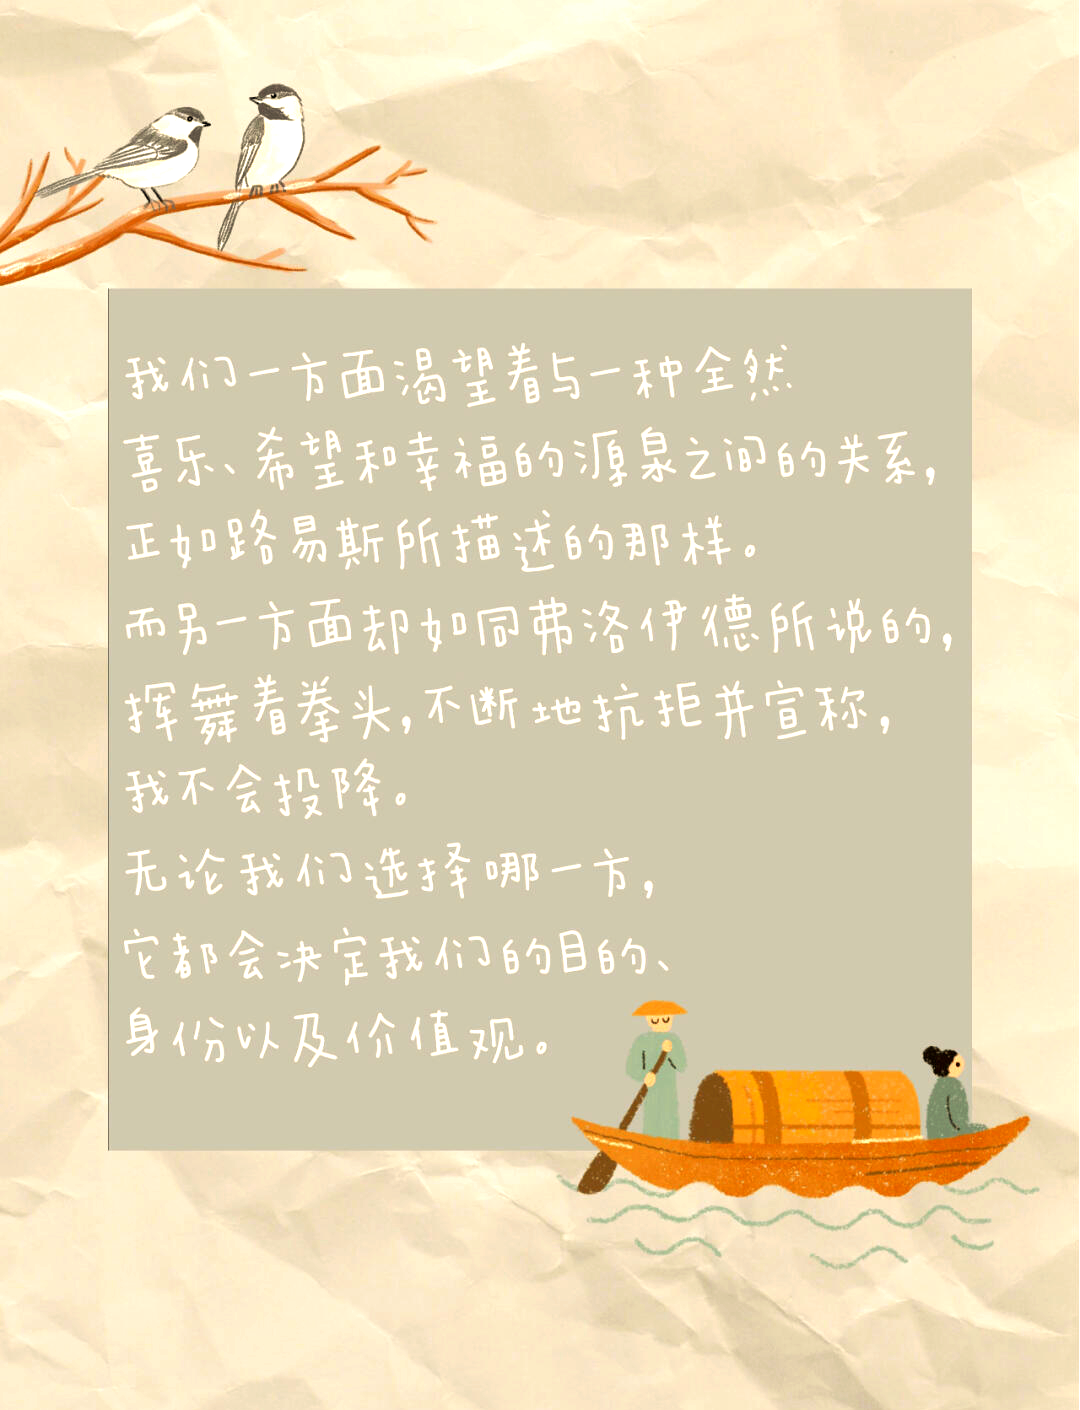 我们一方面渴望着与一种全然
喜乐、希望和幸福的源泉之间的关系,
正如路易斯所描述的那样。
而另一方面却如同弗洛伊德所说的,
挥舞着拳头,不断地抗拒并宣称,
我不会投降。
无论我们选择哪一方,
它都会决定我们的目的、
身份以及价值观。